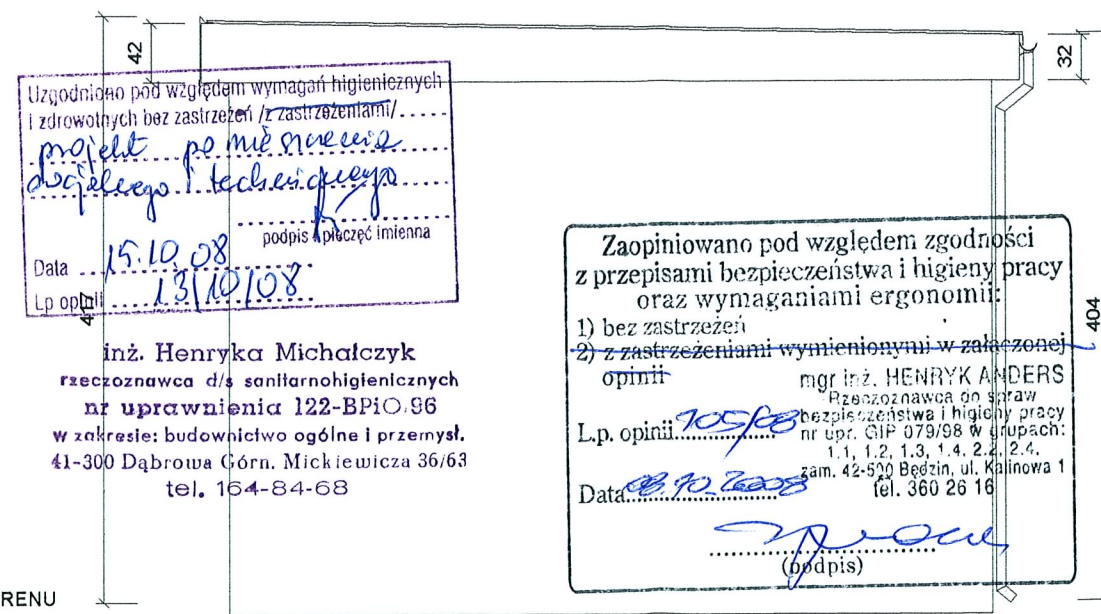 42
32
Uzgodniono pod względem wymagań higienicznych
i zdrowotnych bez zastrzeżeń /z zastrzeżeniami/.....
projekt pomieszczenia
socjalnego i technicznego
podpis i pieczęć imienna
Data 15.10.08
Lp opinii 13/10/08
inż. Henryka Michałczyk
rzeczoznawca d/s sanitarnohigienicznych
nr uprawnienia 122-BPiO.96
w zakresie: budownictwo ogólne i przemysł.
41-300 Dąbrowa Górn. Mickiewicza 36/63
tel. 164-84-68
Zaopiniowano pod względem zgodności
z przepisami bezpieczeństwa i higieny pracy
oraz wymaganiami ergonomii:
1) bez zastrzeżeń
2) z zastrzeżeniami wymienionymi w załączonej
opinii
mgr inż. HENRYK ANDERS
Rzeczoznawca do spraw
bezpieczeństwa i higieny pracy
nr upr. GIP 079/98 w grupach:
1.1, 1.2, 1.3, 1.4, 2.2, 2.4.
zam. 42-500 Będzin, ul. Kalinowa 1
tel. 360 26 16
L.p. opinii 105/08
Data 08.10.2008
(podpis)
404
RENU